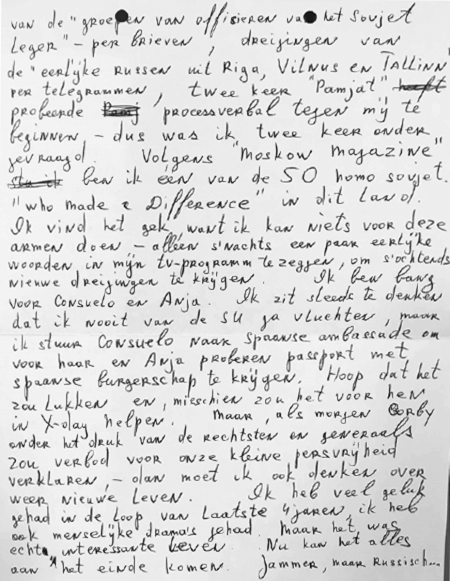 van de "groepen van offisieren van het Sovjet
Leger" - per brieven, dreijingen van
de "eerlijke russen uit Riga, Vilnus en Tallinn"
per telegrammen, twee keer "Pamjat"
probeerde processverbal tegen mij te
beginnen - dus was ik twee keer onder
gevraagd. Volgens "Moskow Magazine"
ben ik één van de 50 homo sovjet.
"who made a Difference" in dit land.
Ik vind het gek, want ik kan niets voor deze
armen doen - alléén s'nachts een paar eerlijke
woorden in mijn tv-programm te zeggen, om s'ochtends
nieuwe dreijingen te krijgen. Ik ben bang
voor Consuelo en Anja. Ik zit steeds te denken
dat ik nooit van de SU ga vluchten, maar
ik stuur Consuelo naar Spaanse ambassade om
voor haar en Anja proberen passport met
spaanse burgerschap te krijgen. Hoop dat het
zou lukken en, misschien zou het voor hen
in X-day helpen. Maar, als morgen Gorby
onder het druk van de rechtsten en generaals
zou verbod voor onze kleine persvrijheid
verklaren, - dan moet ik ook denken over
weer nieuwe leven. Ik heb veel geluk
gehad in de loop van laatste 4 jaren, ik heb
ook menselijke drama's gehad. Maar het was
echt interessante leven. Nu kan het alles
aan het einde komen. Jammer, maar Russisch...